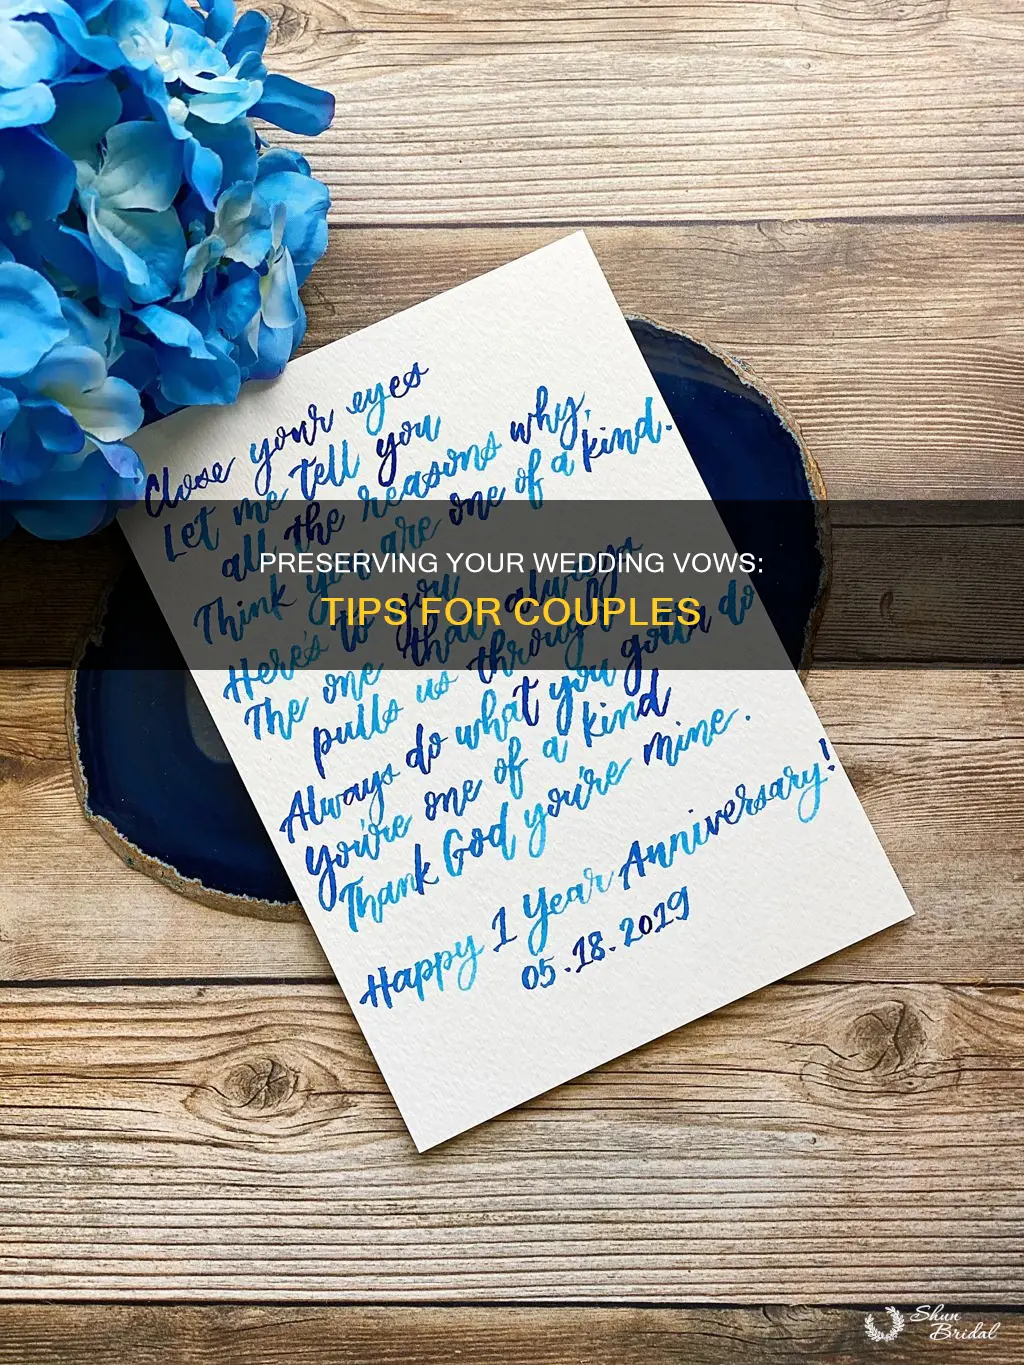 Close your eyes
Let me tell you
all the reasons why,
Think you are one of a kind.
Here's to you
The one that always
pulls us through
Always do what you gotta do
you're one of a kind
Thank God you're mine.
Happy 1 Year Anniversary!
05.18.2019
PRESERVING YOUR WEDDING VOWS:
TIPS FOR COUPLES
Shun
Bridal